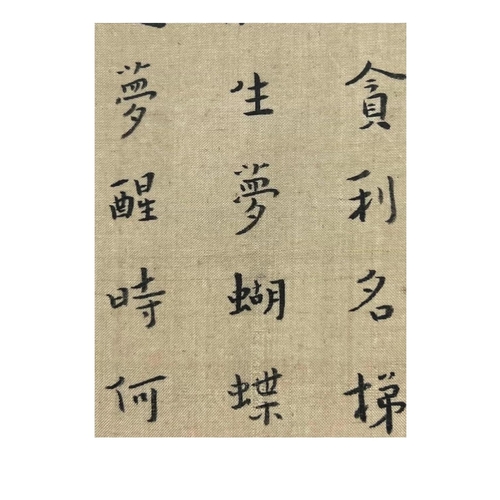 貪利名梯
生夢蝴蝶
夢醒時何